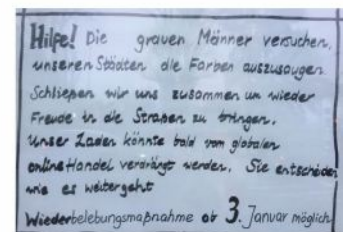 Hilfe! Die grauen Männer versuchen,
unseren Städten die Farben auszusaugen
Schließen wir uns zusammen um wieder
Freude in die Straßen zu bringen.
Unser Laden könnte bald vom globalen
onlineHandel verdrängt werden. Sie entscheiden
wie es weitergeht
Wiederbelebungsmaßnahme ab 3. Januar möglich